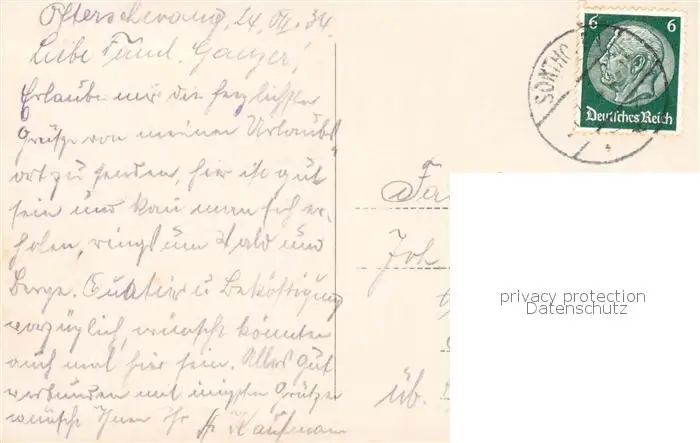 Ofterschwang, 24. VII. 34.
Liebe Famil. Ganzer!
Erlaube mir die herzlichsten
Grüße von meinen Urlaubs
ort zu senden, hier ist gut
sein und kan man sich er-
holen, rings um Wald und
Berge. Quatier u Beköstigung
vorzüglich, wünscht könnten
auch mal hier sein. Alles gut
verbunden mit innigsten Grüßen
wünscht Ihnen Ihr H Kaufmann
6 6
Deutsches Reich
SONTHO
Fa
Joh
üb.
privacy protection
Datenschutz